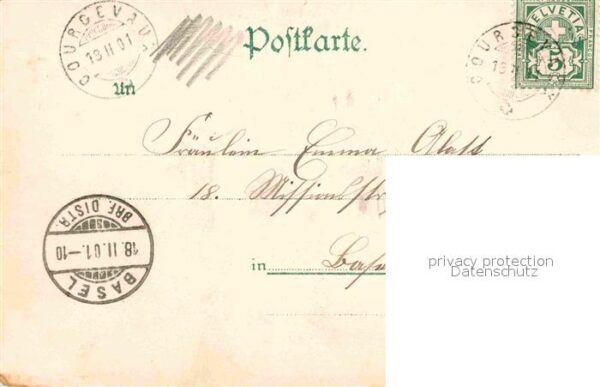 COURGEVAUX
18 II 01
Postkarte.
HELVETIA
5
COURGEV
18
An
Fräulein Emma Glatt
18. Missionsstr
BRF. DISTR.
18.II.01.–10
BASEL
in Base
privacy protection
Datenschutz